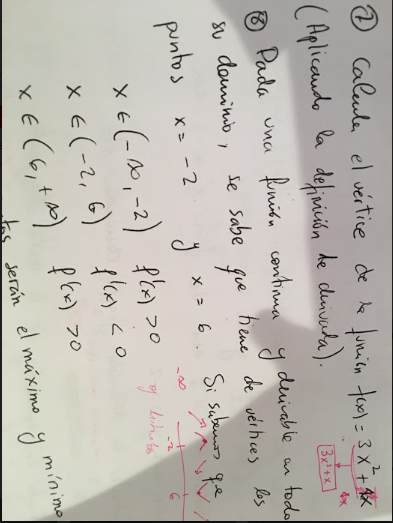 ⑦ Calcula el vértice de la función f(x) = 3x² +
(Aplicando la definición de derivada).
3x²+x
⑧ Dada una función continua y derivable en todo
su dominio, se sabe que tiene de vértices los
puntos x = -2 y x = 6. Si sabemos que
x ∈ (-∞, -2) f'(x) > 0
x ∈ (-2, 6) f'(x) < 0
x ∈ (6, +∞) f'(x) > 0
-∞ -2 6
serán el máximo y mínimo